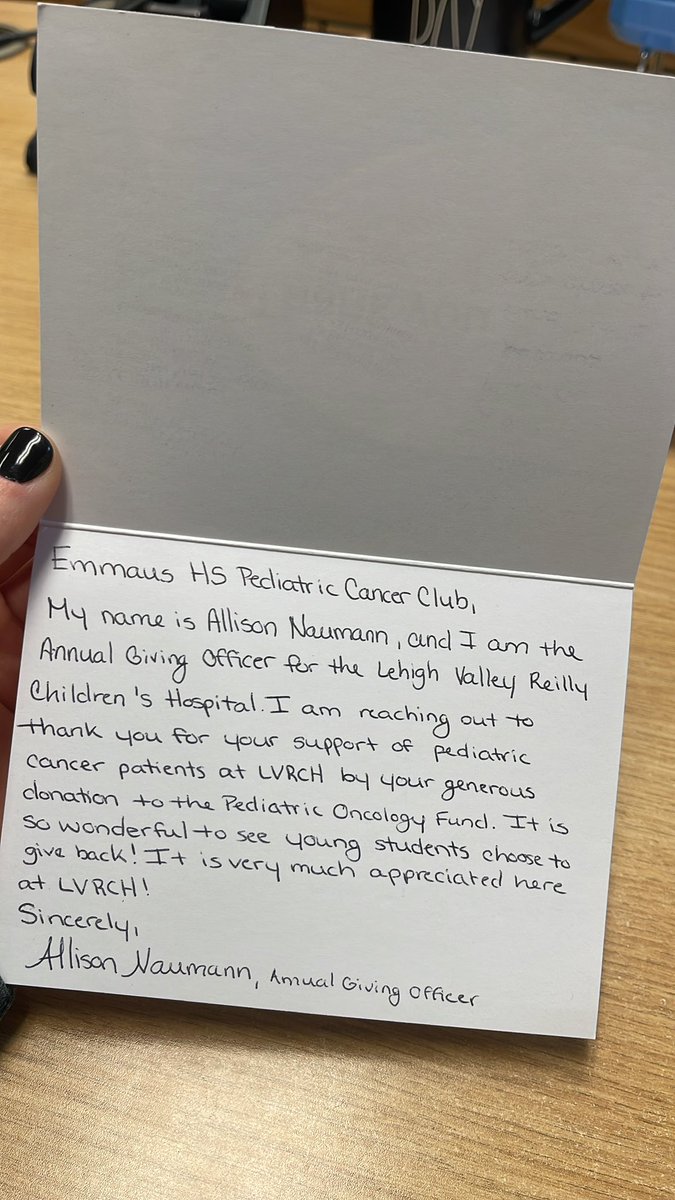 Emmaus HS Pediatric Cancer Club,
My name is Allison Naumann, and I am the
Annual Giving Officer for the Lehigh Valley Reilly
Children's Hospital. I am reaching out to
thank you for your support of pediatric
cancer patients at LVRCH by your generous
donation to the Pediatric Oncology Fund. It is
so wonderful to see young students choose to
give back! It is very much appreciated here
at LVRCH!
Sincerely,
Allison Naumann, Annual Giving Officer